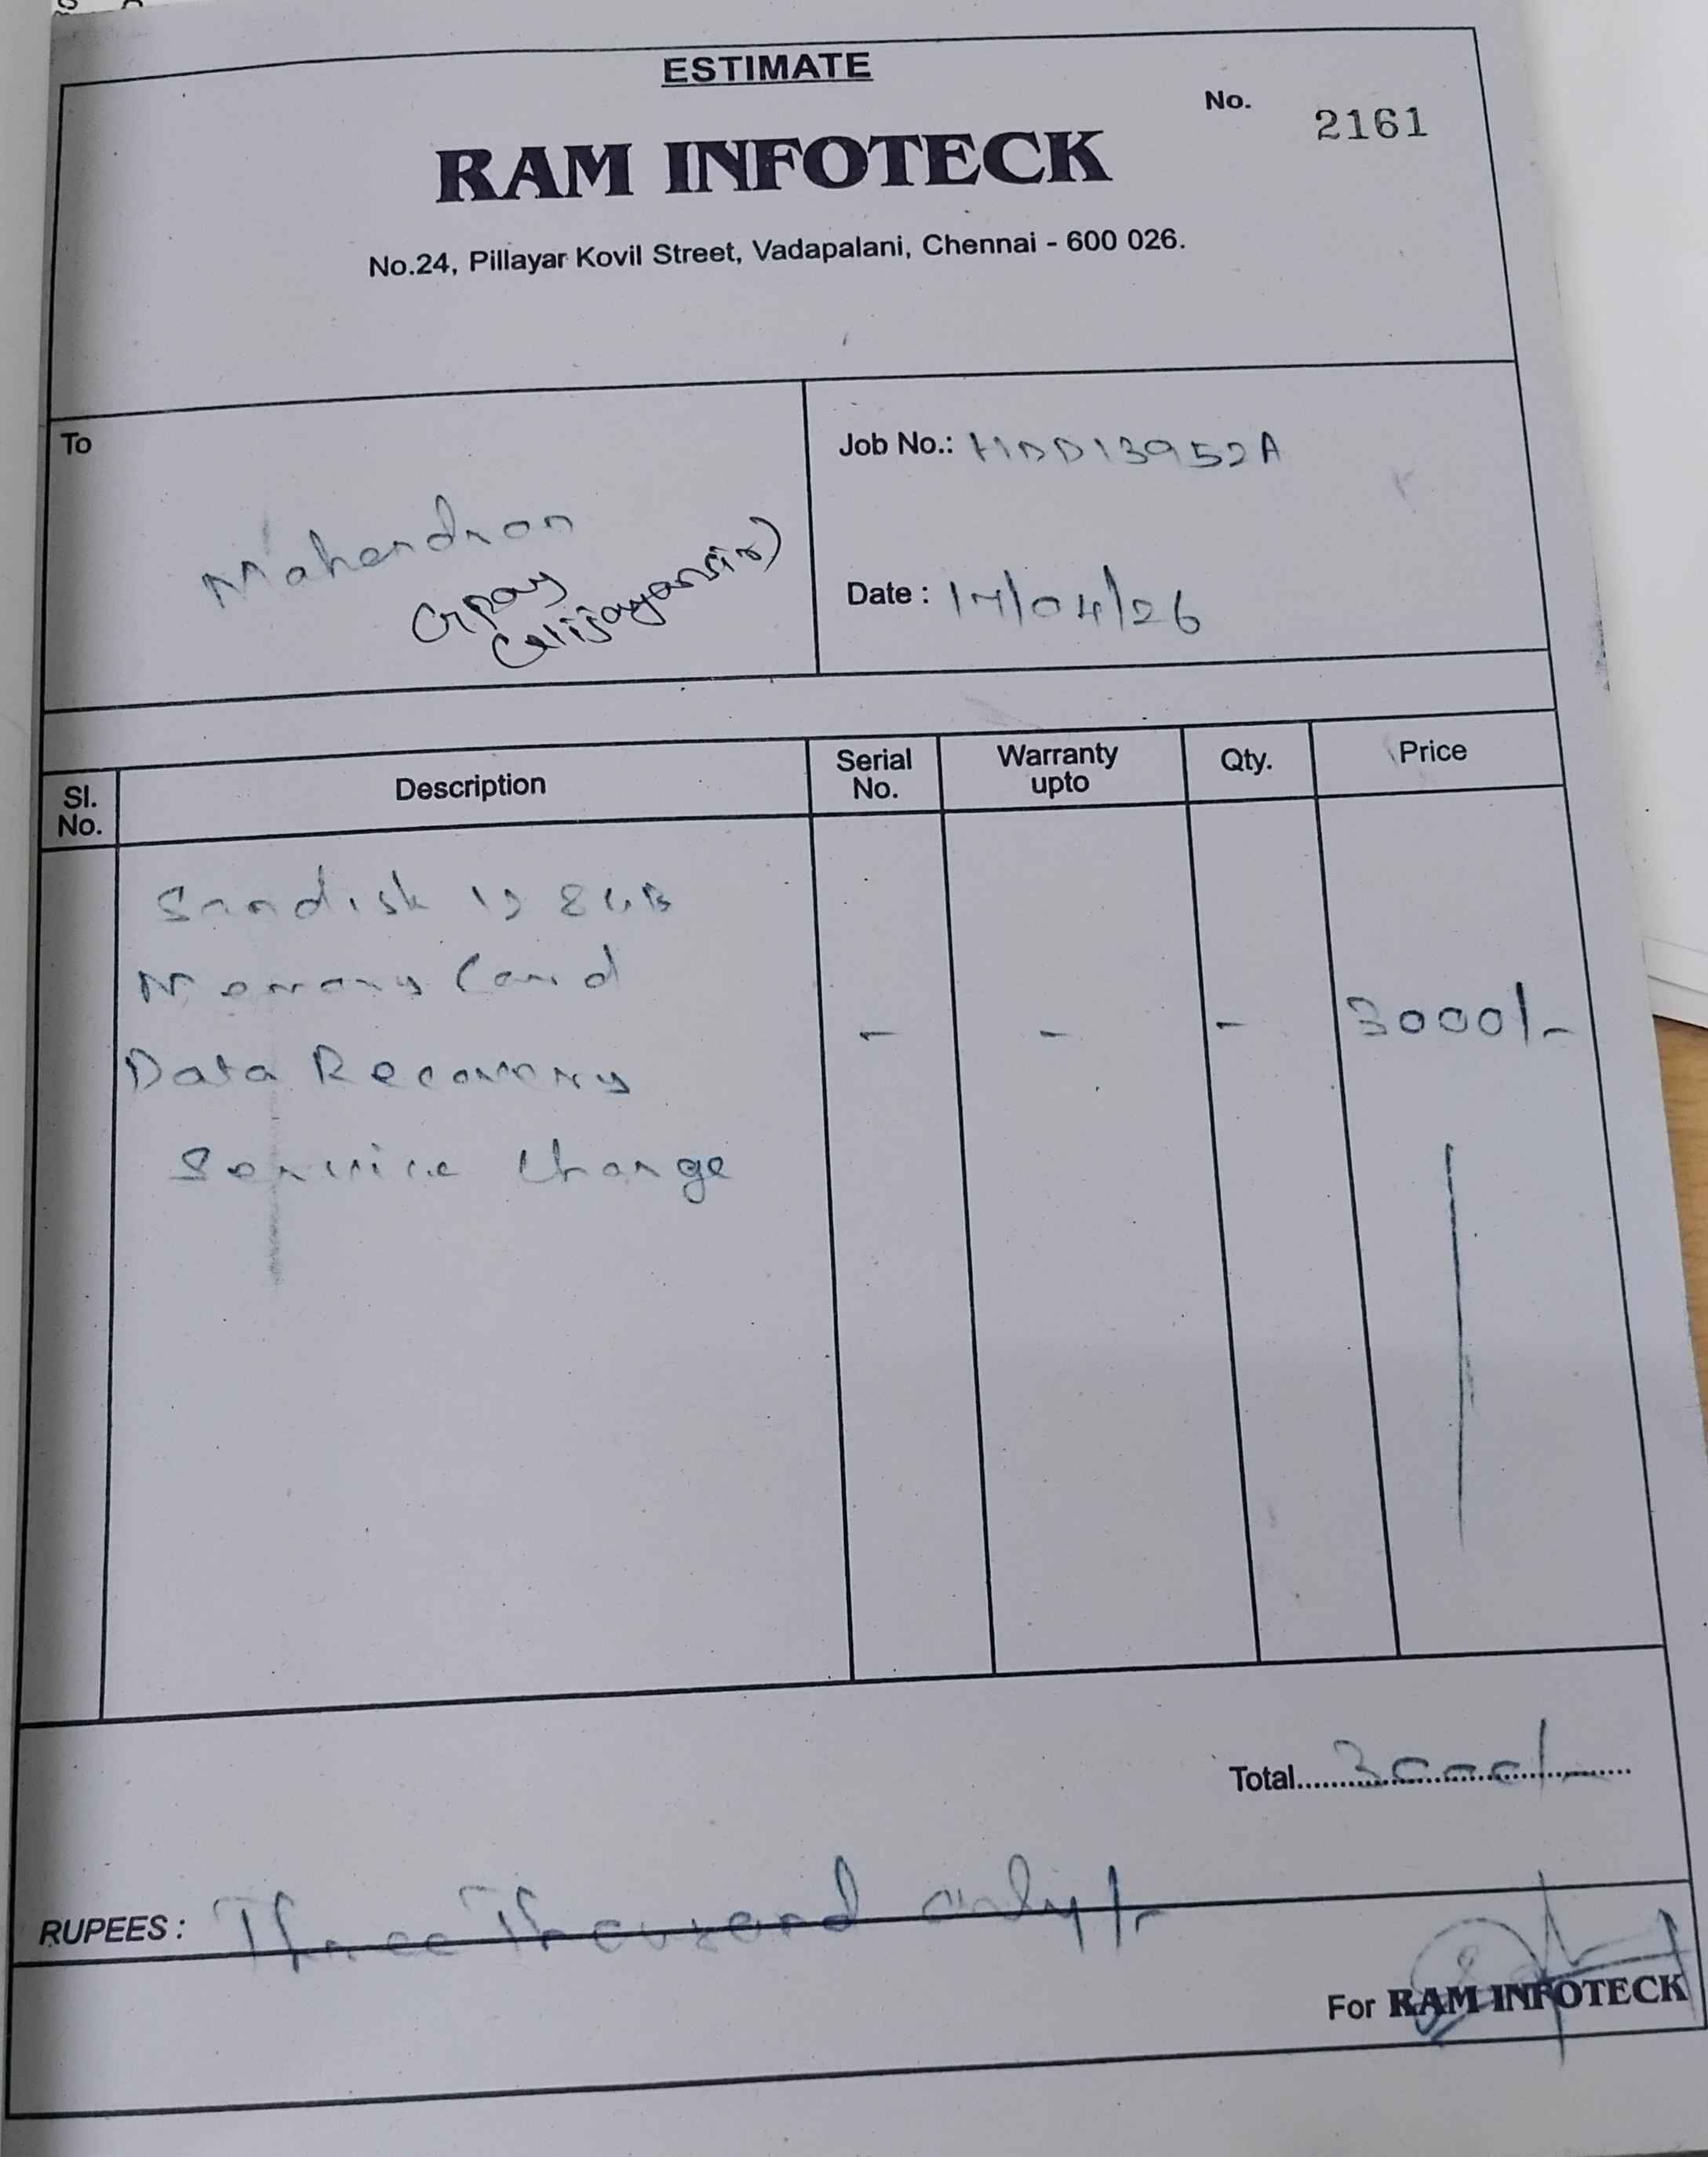 ESTIMATE
No. 2161
RAM INFOTECK
No.24, Pillayar Kovil Street, Vadapalani, Chennai - 600 026.
To
Mahendran
Gpay
(Vijayansir)
Job No.: HDD13952A
Date : 17/04/26
Sl. No.
Description
Serial No.
Warranty upto
Qty.
Price
Sandisk 128GB
Memory Card
Data Recovery
Service Charge
- - - 3000/-
Total 3000/-
RUPEES : Three Thousand only/-
For RAM INFOTECK